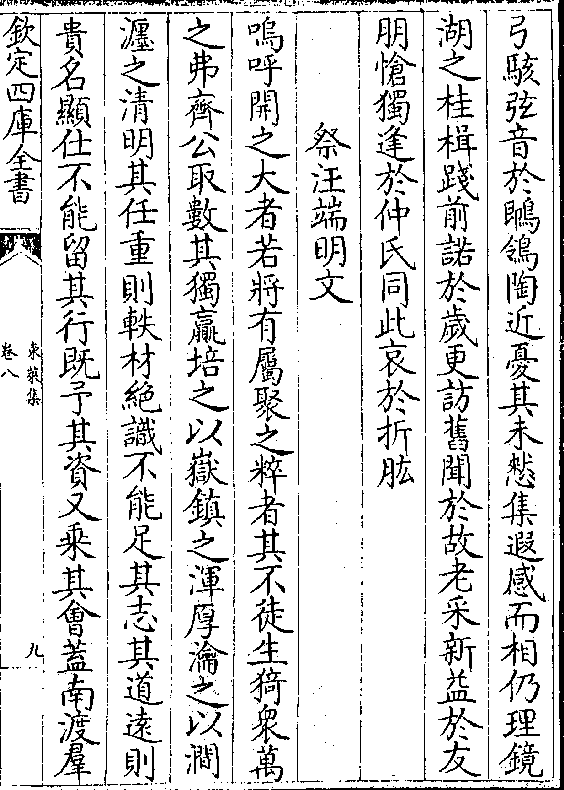 弓駭弦音於鵰鴒陶近憂其未愁集遐感而相仍理鏡
湖之桂楫踐前諾於歲更訪舊聞於故老采新益於友
朋愴獨逢於仲氏同此哀於折肱
祭汪端明文
嗚呼開之大者若將有屬聚之粹者其不徒生猗衆萬
之弗齊公取數其獨贏培之以嶽鎮之渾厚瀹之以澗
瀍之清明其任重則軼材絕識不能足其志其道遠則
貴名顯仕不能留其行既予其資又乘其會蓋南渡羣
欽定四庫全書
東萊集
卷八
九